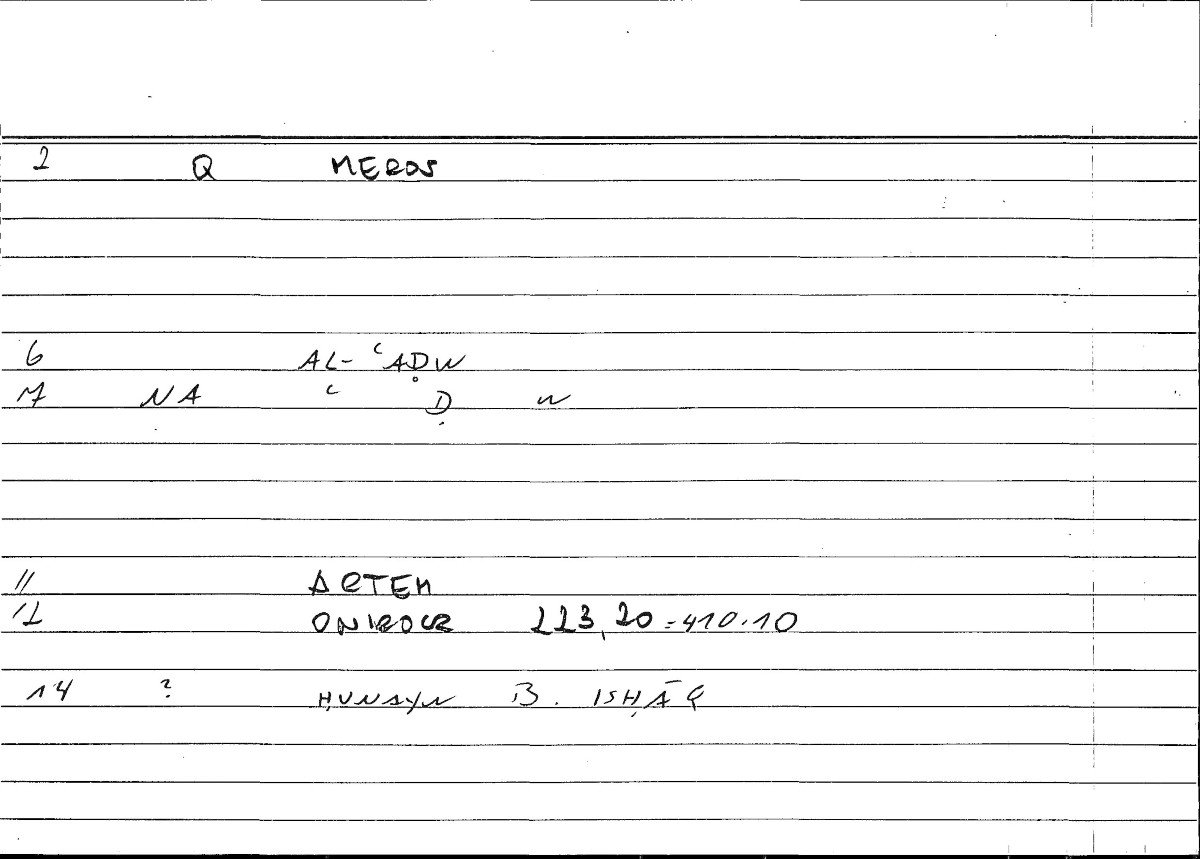 2 Q MEROS
6 AL-ʿAḌW
7 NA ʿ Ḍ W
11 ARTEM
12 ONIROCR 223,20 = 410.10
14 ? ḤUNAYN B. ISḤĀQ